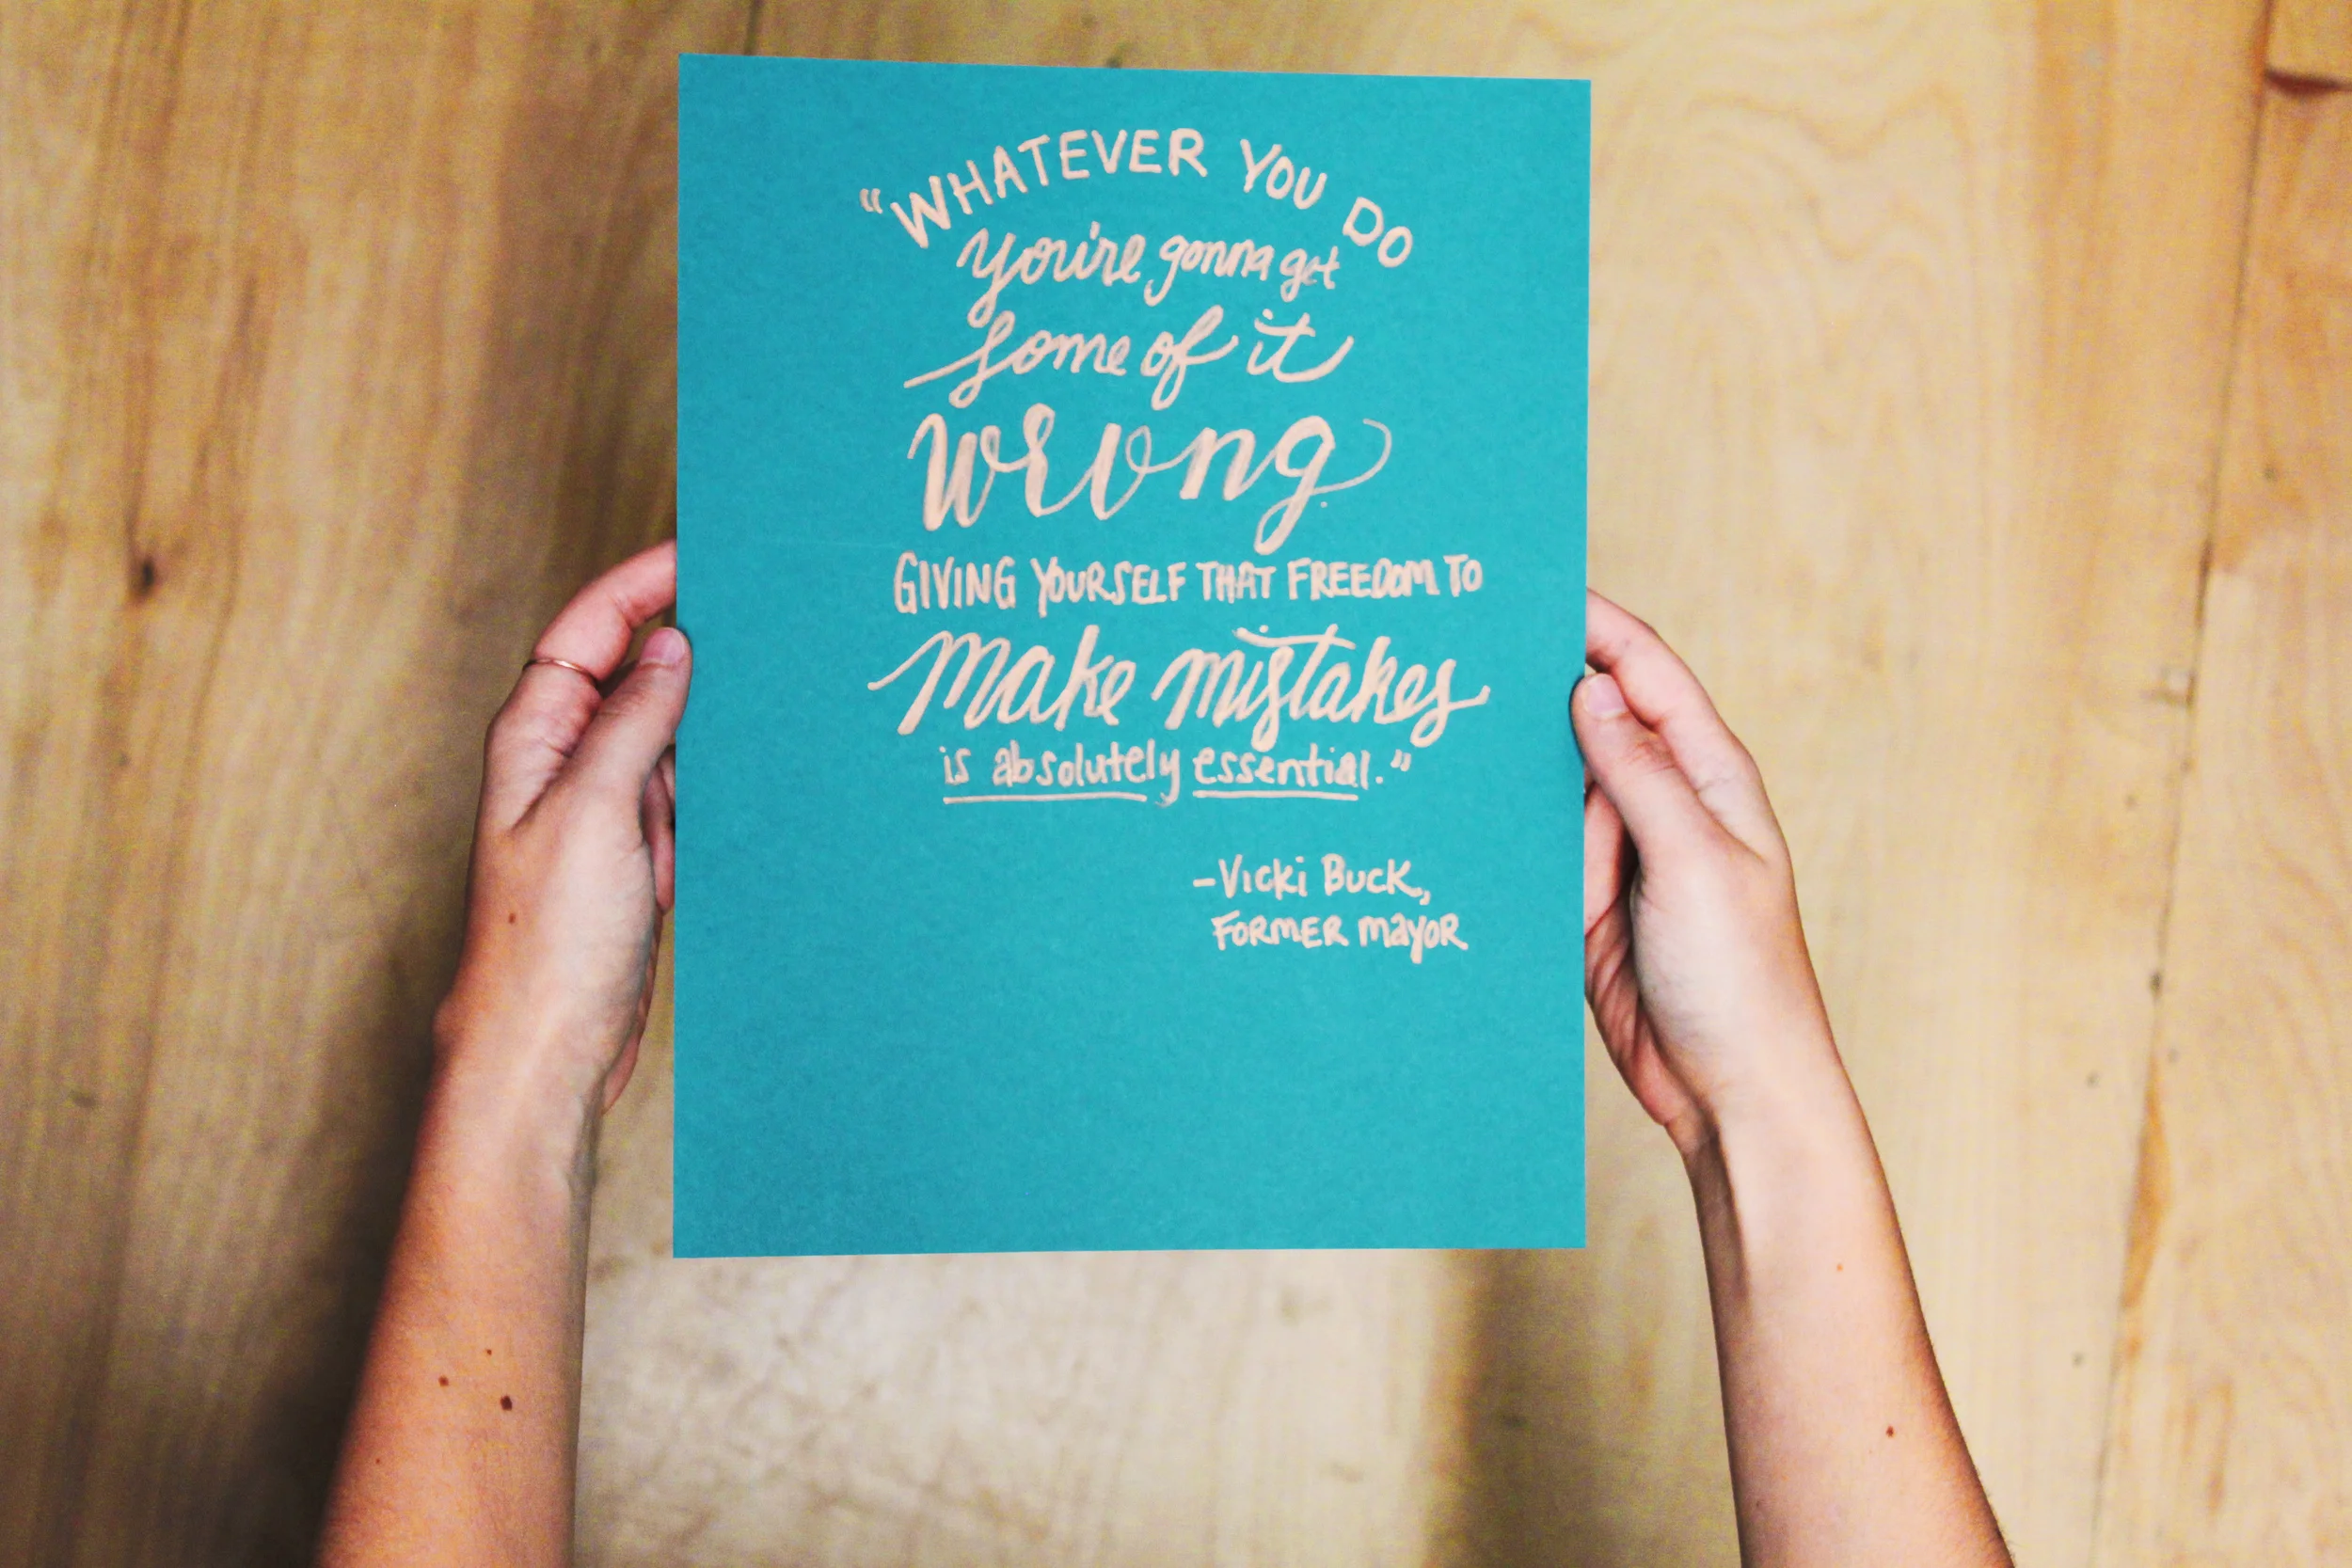 "WHATEVER YOU DO
you're gonna get
some of it
wrong.
GIVING YOURSELF THAT FREEDOM TO
make mistakes
is absolutely essential."
-Vicki Buck,
FORMER mayor